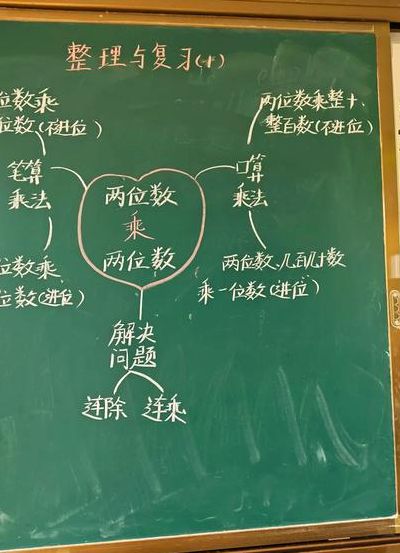 整理与复习(十)
位数乘
位数(不进位)
两位数乘整十、
整百数(不进位)
笔算
乘法
口算
乘法
两位数
乘
两位数
位数乘
位数(进位)
两位数、几百几十数
乘一位数(进位)
解决
问题
连除 连乘